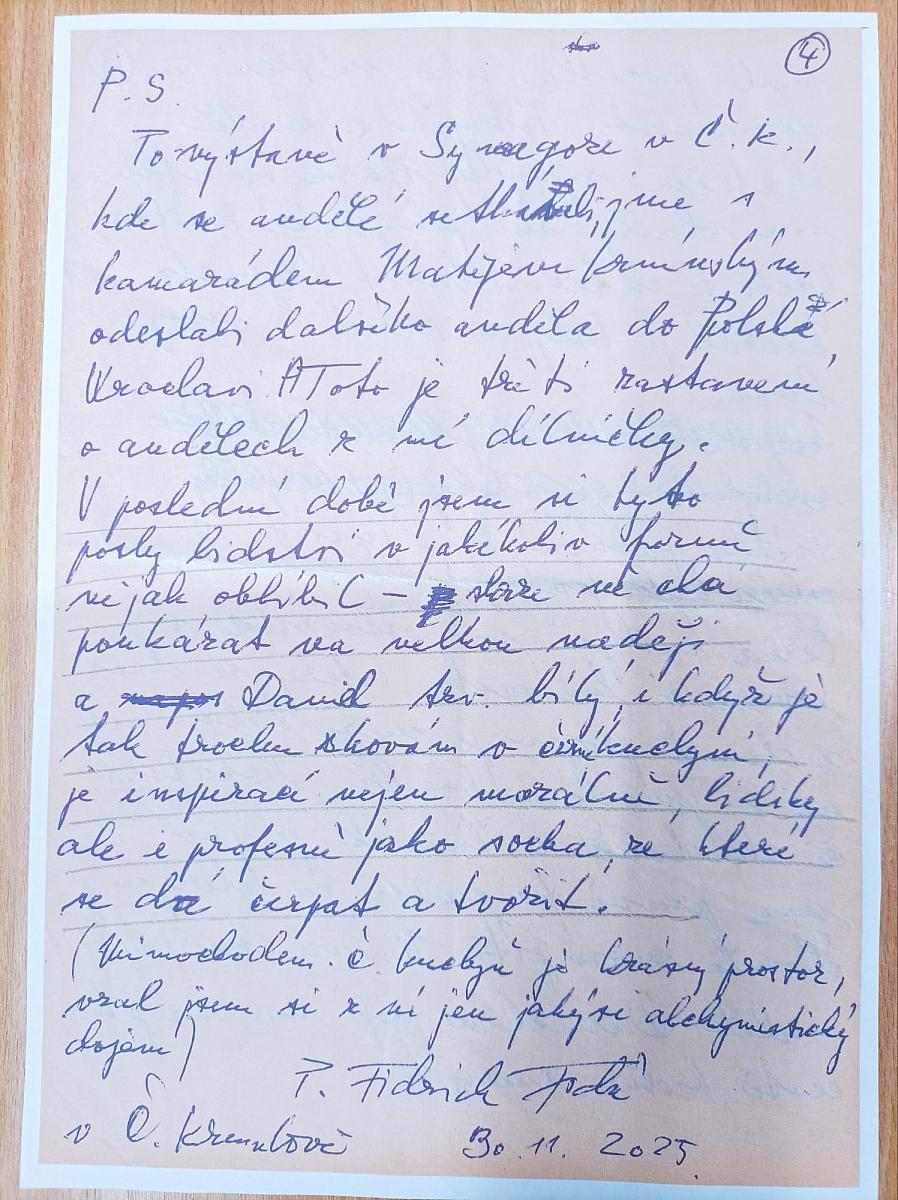 4
P.S.
To výstavě v Synagoze v Č.K.,
kde se andělé setkali, jsme s
kamarádem Matějem Krninským
odeslali dalšího anděla do Polské
Vroclavi. Toto je třetí zastavení
o andělech z mé dílničky.
V poslední době jsem si tyto
posly lidství v jakékoliv formě
nějak oblíbil – skrze ně dá
poukázat na velkou naději
a David tzv. bílý, i když je
tak trochu skován v černé kuchyni,
je inspirací nejen morálně, lidsky
ale i profesně jako socha, ze které
se dá čerpat a tvořit.
(Mimochodem. č. kuchyň je krásný prostor,
vzal jsem si z ní jen jakýsi alchymistický
dojem)
P. Fidrich
v Č. Krumlově 30.11. 2025